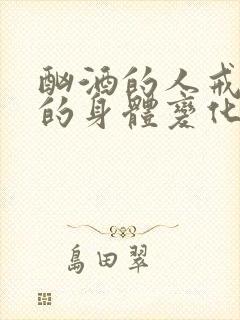 酗酒的人戒
的身體變化
島田翠